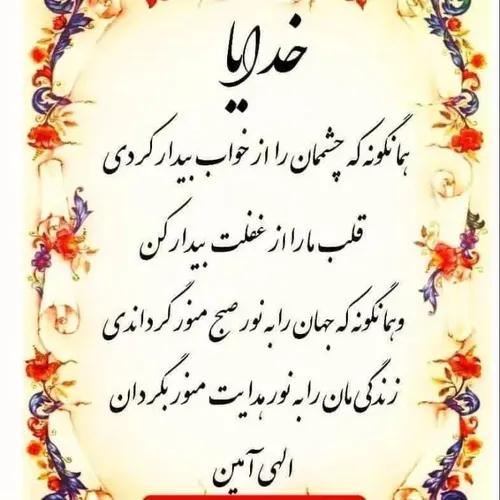 خدایا
همانگونه که چشمان را از خواب بیدار کردی
قلب ما را از غفلت بیدار کن
و همانگونه که جهان را به نور صبح منور گرداندی
زندگی مان را به نور هدایت منور بگردان
الهی آمین